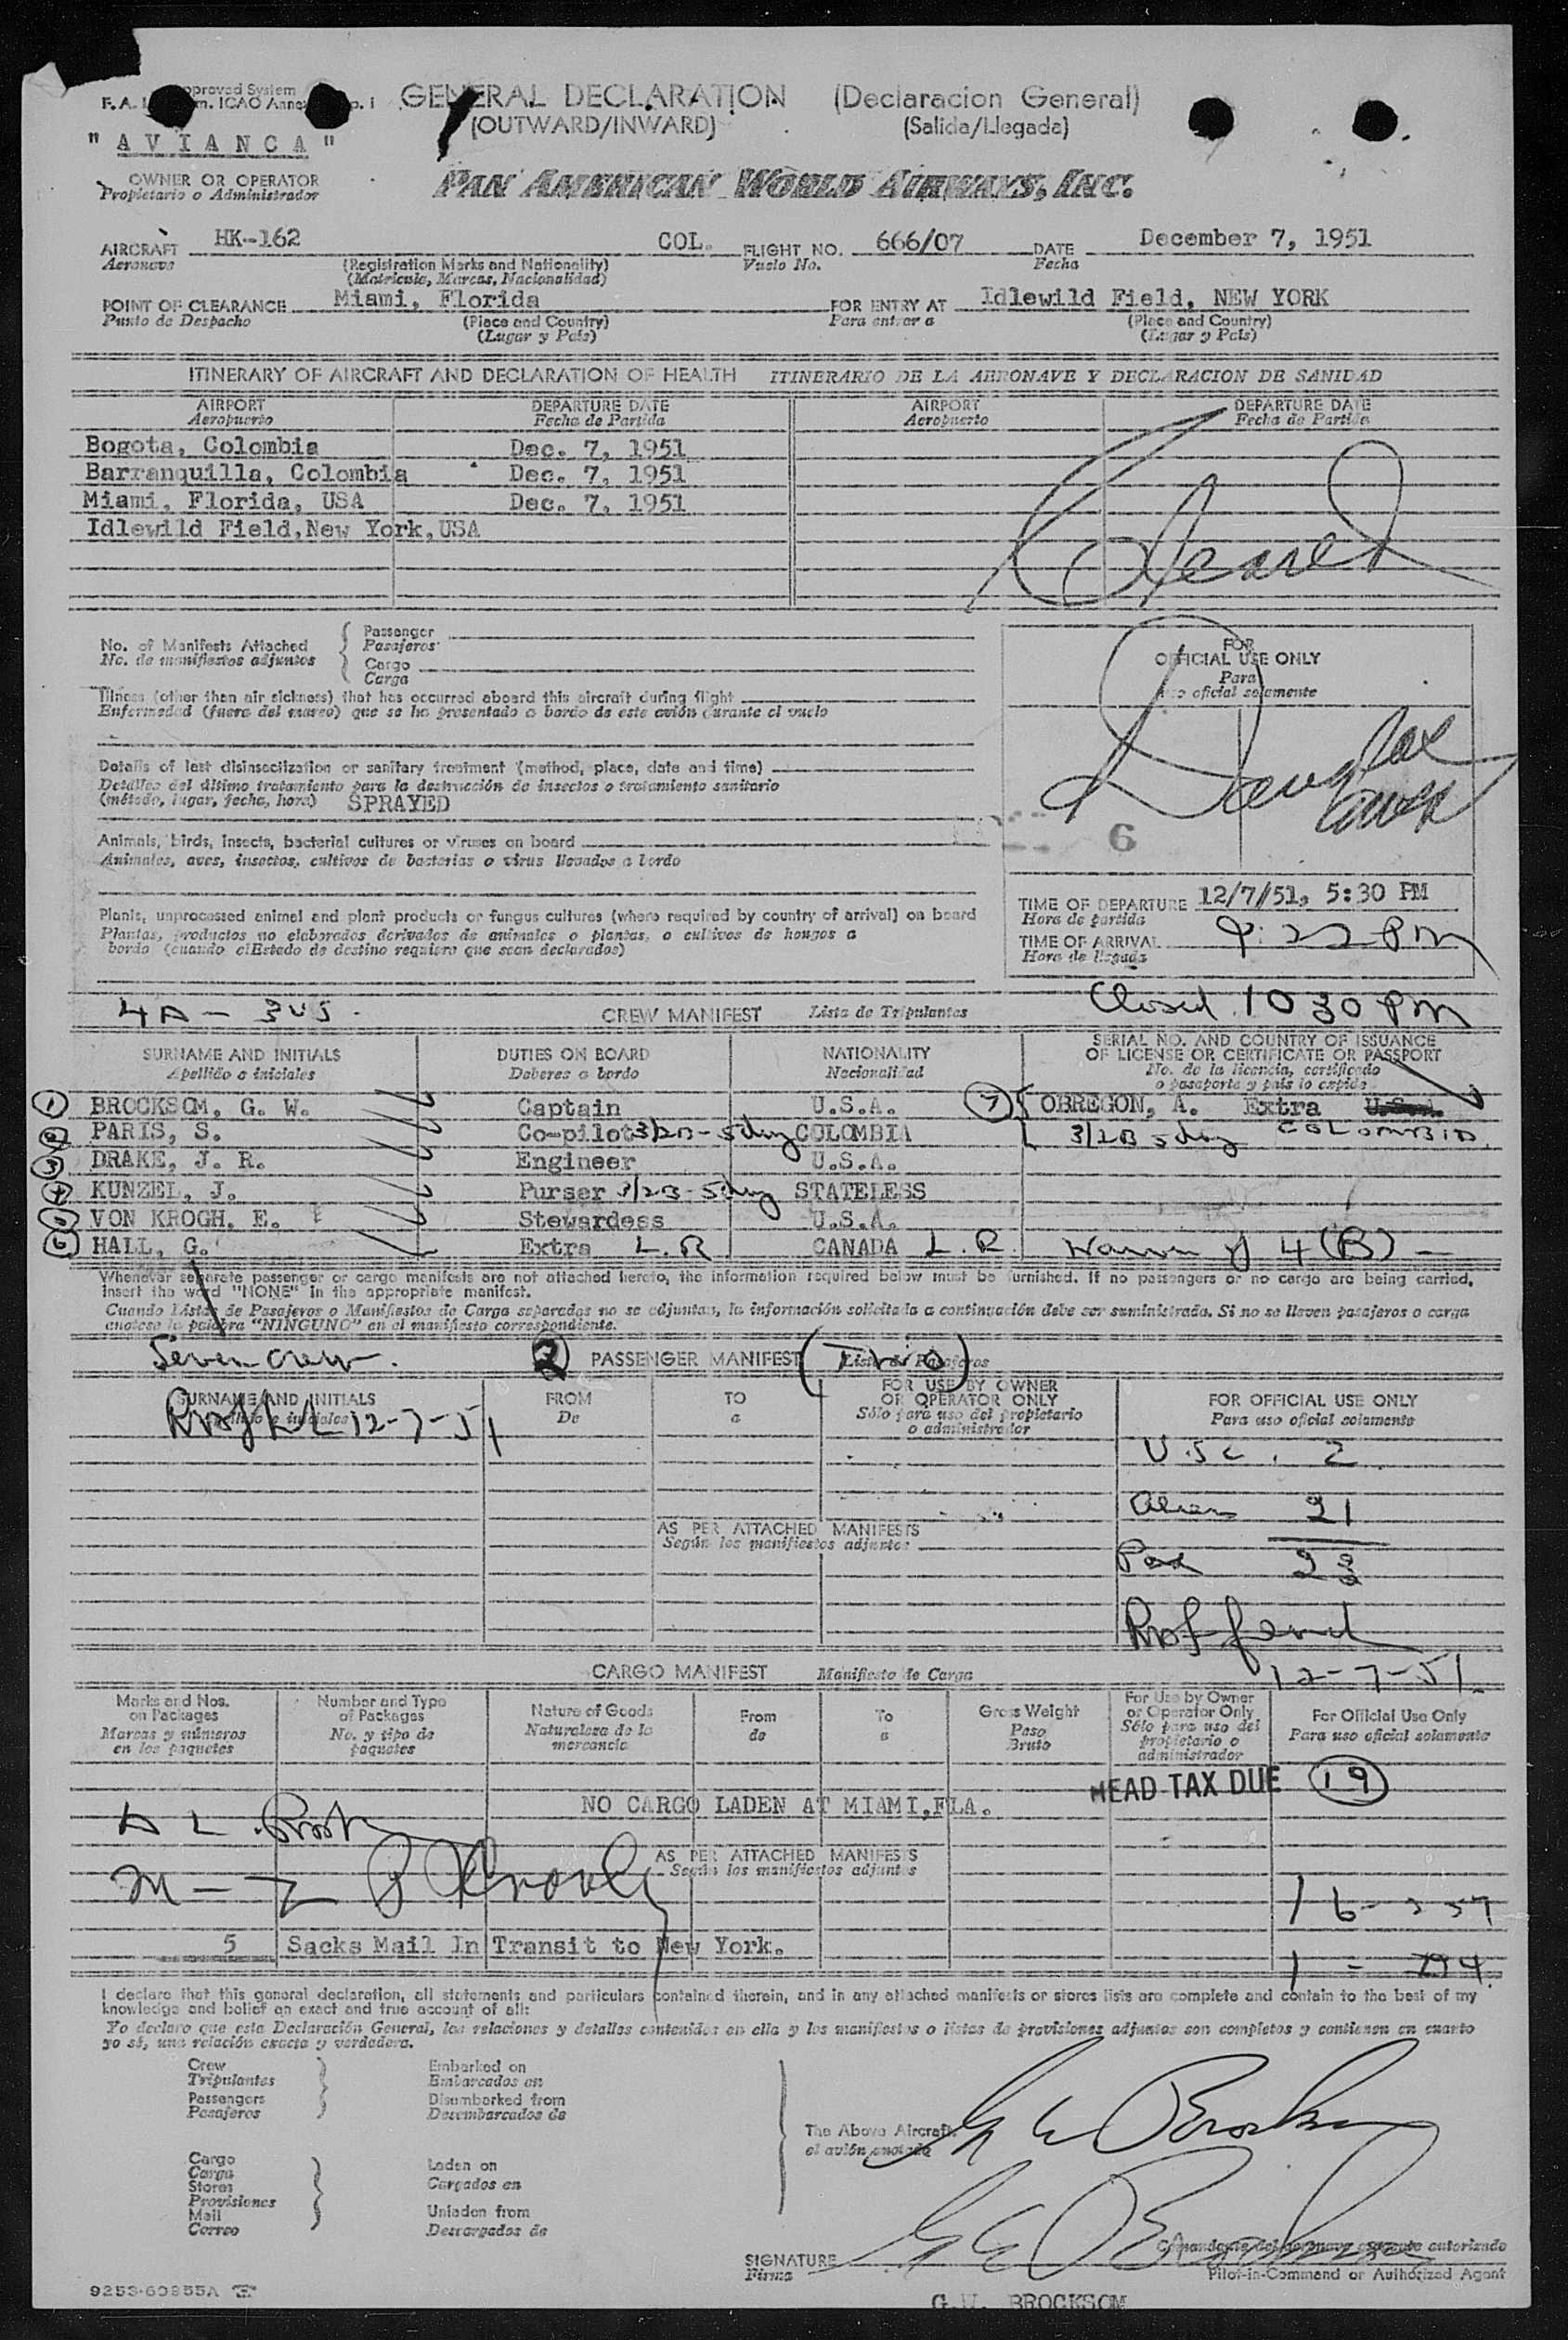 Approved System
F.A. m. ICAO Annex p. i
GENERAL DECLARATION (Declaracion General)
(OUTWARD/INWARD) (Salida/Llegada)
" AVIANCA "
OWNER OR OPERATOR
Propietario o Administrador
PAN AMERICAN WORLD AIRWAYS, INC.
AIRCRAFT HK-162 COL. FLIGHT NO. 666/07 DATE December 7, 1951
Aeronave (Registration Marks and Nationality) Vuelo No. Fecha
(Matricula, Marcas, Nacionalidad)
POINT OF CLEARANCE Miami, Florida FOR ENTRY AT Idlewild Field, NEW YORK
Punto de Despacho (Place and Country) Para entrar a (Place and Country)
(Lugar y País) (Lugar y País)
ITINERARY OF AIRCRAFT AND DECLARATION OF HEALTH ITINERARIO DE LA AERONAVE Y DECLARACION DE SANIDAD
AIRPORT DEPARTURE DATE AIRPORT DEPARTURE DATE
Aeropuerto Fecha de Partida Aeropuerto Fecha de Partida
Bogota, Colombia Dec. 7, 1951
Barranquilla, Colombia Dec. 7, 1951
Miami, Florida, USA Dec. 7, 1951
Idlewild Field,New York,USA
Cleared
No. of Manifests Attached Passenger
No. de manifiestos adjuntos Pasajeros
Cargo
Carga
FOR
OFFICIAL USE ONLY
Para
uso oficial solamente
Illness (other than air sickness) that has occurred aboard this aircraft during flight
Enfermedad (fuera del mareo) que se ha presentado a bordo de este avión durante el vuelo
Details of last disinsectization or sanitary treatment (method, place, date and time)
Detalles del último tratamiento para la destrucción de insectos o tratamiento sanitario
(método, lugar, fecha, hora) SPRAYED
Douglas
6
Animals, birds, insects, bacterial cultures or viruses on board
Animales, aves, insectos, cultivos de bacterias o virus llevados a bordo
Plants, unprocessed animal and plant products or fungus cultures (where required by country of arrival) on board
Plantas, productos no elaborados derivados de animales o plantas, o cultivos de hongos a
bordo (cuando el Estado de destino requiera que sean declarados)
TIME OF DEPARTURE 12/7/51, 5:30 PM
Hora de partida
TIME OF ARRIVAL 9:22 PM
Hora de llegada
4A - 3US. CREW MANIFEST Lista de Tripulantes Closed 10 30 PM
SURNAME AND INITIALS DUTIES ON BOARD NATIONALITY SERIAL NO. AND COUNTRY OF ISSUANCE
OF LICENSE OR CERTIFICATE OR PASSPORT
Apellido e iniciales Deberes a bordo Nacionalidad No. de la licencia, certificado
o pasaporte y país lo expide
1 BROCKSOM, G. W. Captain U.S.A. 7 OBREGON, A. Extra U.S.A.
2 PARIS, S. Co-pilot 3/2B-5day COLOMBIA 3/2B 5day COLOMBIA
3 DRAKE, J. R. Engineer U.S.A.
4 KUNZEL, J. Purser 3/2B-5day STATELESS
5 VON KROGH, E. Stewardess U.S.A.
6 HALL, G. Extra L.R CANADA L.R. 4 (B) -
Whenever separate passenger or cargo manifests are not attached hereto, the information required below must be furnished. If no passengers or no cargo are being carried,
insert the word "NONE" in the appropriate manifest.
Cuando Listas de Pasajeros o Manifiestos de Carga separados no se adjuntan, la información solicitada a continuación debe ser suministrada. Si no se llevan pasajeros o carga
anótese la palabra "NINGUNO" en el manifiesto correspondiente.
Seven Crew. 2 PASSENGER MANIFEST Lista de Pasajeros
SURNAME AND INITIALS FROM TO FOR USE BY OWNER
OR OPERATOR ONLY FOR OFFICIAL USE ONLY
Apellido e iniciales De a Sólo para uso del propietario
o administrador Para uso oficial solamente
12-7-51
U.S.C. 2
Aliens 21
AS PER ATTACHED MANIFESTS
Según los manifiestos adjuntos
Pax 23
12-7-51.
CARGO MANIFEST Manifiesto de Carga
Marks and Nos.
on Packages
Marcas y números
en los paquetes
Number and Type
of Packages
No. y tipo de
paquetes
Nature of Goods
Naturaleza de la
mercancía
From
de
To
a
Gross Weight
Peso
Bruto
For Use by Owner
or Operator Only
Sólo para uso del
propietario o
administrador
For Official Use Only
Para uso oficial solamente
HEAD TAX DUE 19
NO CARGO LADEN AT MIAMI,FLA.
AS PER ATTACHED MANIFESTS
Según los manifiestos adjuntos
5 Sacks Mail In Transit to New York.
I declare that this general declaration, all statements and particulars contained therein, and in any attached manifests or stores lists are complete and contain to the best of my
knowledge and belief an exact and true account of all:
Yo declaro que esta Declaración General, las relaciones y detalles contenidos en ella y los manifiestos o listas de provisiones adjuntos son completos y contienen en cuanto
yo sé, una relación exacta y verdadera.
Crew
Tripulantes
Passengers
Pasajeros
Embarked on
Embarcados en
Disembarked from
Desembarcados de
Cargo
Carga
Stores
Provisiones
Mail
Correo
Laden on
Cargados en
Unladen from
Descargados de
The Above Aircraft
el avión anotado
SIGNATURE
Firma
Comandante del aeronave o agente autorizado
Pilot-in-Command or Authorized Agent
9253-60855A
G.W. BROCKSOM